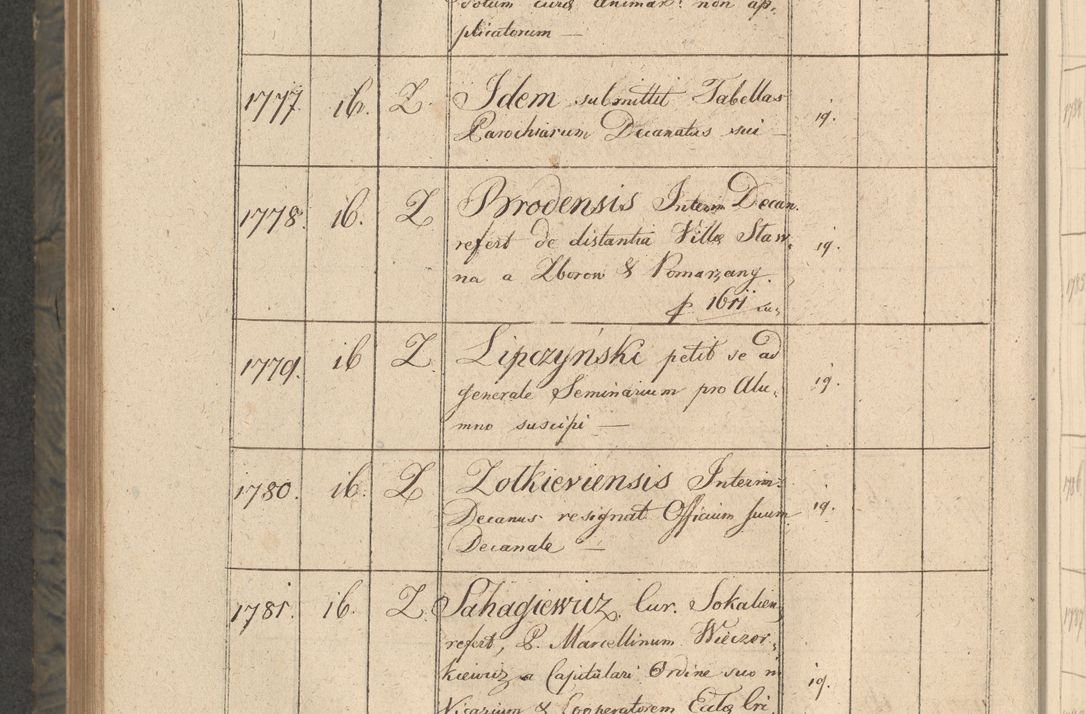 dotum curæ animar: non ap,
plicatorum —
1777. ib. Z. Idem submittit Tabellas
Parochiarum Decanatus sui — 19.
1778. ib. Z Brodensis Interim Decan.
refert de distantia Villæ Staw,
na a Zborow & Pomarzany. 19.
1779. ib Z. Lipczyński petit se ad
generale Seminarium pro Alu, 19.
mno suscipi —
1780. ib. Z Zolkieviensis Interim-
Decanus resignat Officium suum 19.
Decanale —
1781. ib. Z. Sahagiewicz Cur. Sokalien,
refert, P. Marcellinum Wieczor,
kiewicz a Capitulari Ordine suo in 19.
Vicarium & Cooperatorem Ecclæ